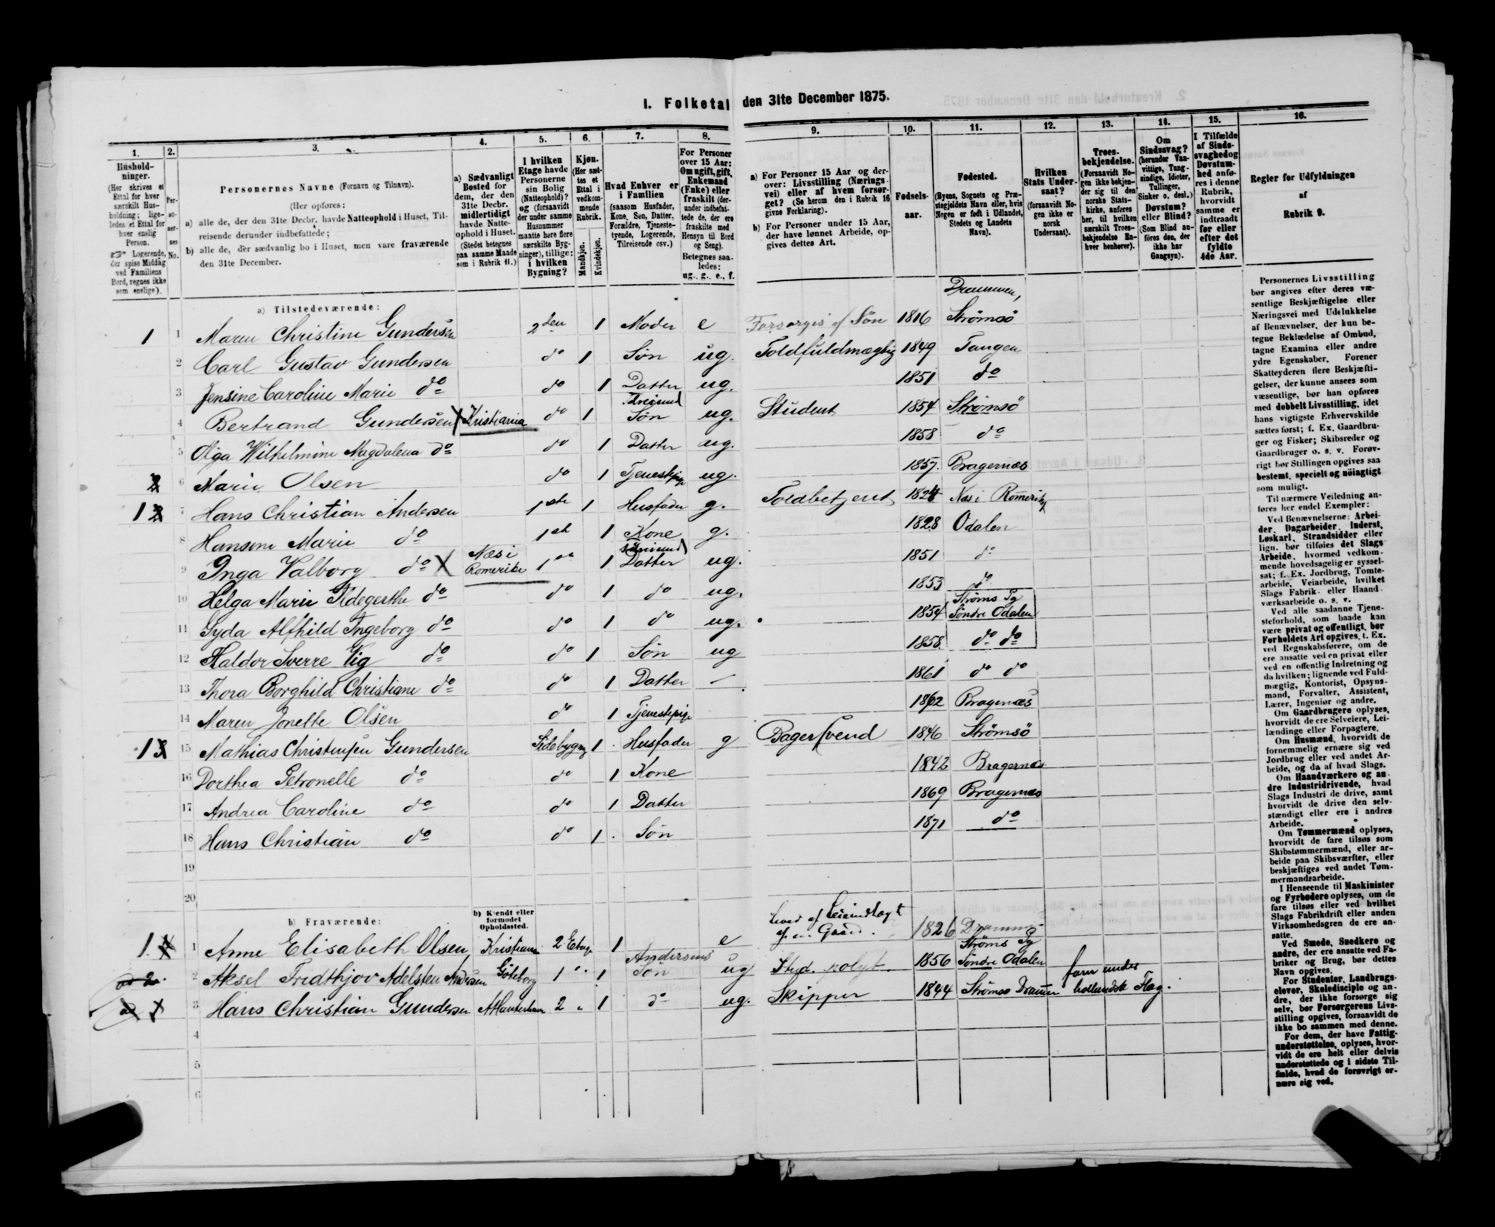 I. Folketal den 31te December 1875.
1. 2. 3. 4. 5. 6. 7. 8. 9. 10. 11. 12. 13. 14. 15. 16.
Hushold-
ninger.
(Her skrives et
Ettal for hver
særskilt Hus-
holdning; lige-
ledes et Ettal for
hver enslig
Person.
☞ Logerende,
der spise Middag
ved Familiens
Bord, regnes ikke
som enslige).
Per-
so-
ner-
nes
No.
Personernes Navne (Fornavn og Tilnavn).
(Her opføres:
a) alle de, der den 31te Decbr. havde Natteophold i Huset, Til-
reisende derunder indbefattede;
b) alle de, der sædvanlig bo i Huset, men vare fraværende
den 31te December.
a) Sædvanligt
Bosted for
dem, der den
31te Decbr.
midlertidigt
havde Natte-
ophold i Huset.
(Stedet betegnes
paa samme Maade
som i Rubrik 11.)
I hvilken
Etage havde
Personerne
sin Bolig
(Natteophold)?
og (forsaavidt
der under samme
Husnummer
maatte høre flere
særskilte Byg-
ninger), tillige:
i hvilken
Bygning?
Kjøn.
(Her sæt-
tes et
Ettal i
vedkom-
mende
Rubrik.
Mandkjøn.
Kvindekjøn.
Hvad Enhver er
i Familien
(saasom Husfader,
Kone, Søn, Datter,
Forældre, Tjeneste-
tyende, Logerende,
Tilreisende osv.)
For Personer
over 15 Aar:
Om ugift, gift,
Enkemand
(Enke) eller
fraskilt (der-
under indbefat-
tede de, der ere
fraskilte med
Hensyn til Bord
og Seng).
Betegnes saa-
ledes:
ug., g., e., f.
a) For Personer 15 Aar og der-
over: Livsstilling (Nærings-
vei) eller af hvem forsør-
get? (Se herom den i Rubrik 16
givne Forklaring).
b) For Personer under 15 Aar,
der have lønnet Arbeide, op-
gives dettes Art.
Fødsels-
aar.
Fødested.
(Byens, Sognets og Præ-
stegjeldets Navn eller, hvis
Nogen er født i Udlandet,
Stedets og Landets
Navn).
Hvilken
Stats Under-
saat?
(forsaavidt No-
gen ikke er
norsk
Undersaat).
Troes-
bekjendelse.
(Forsaavidt No-
gen ikke bekjen-
der sig til den
norske Stats-
kirke, anføres
her, til hvilken
særskilt Troes-
bekjendelse En-
hver henhører).
Om
Sindssvag?
(herunder Van-
vittige, Tung-
sindige, Idioter,
Tullinger,
Sinker o. desl.)
Døvstum?
eller Blind?
(Som Blind an-
føres den, der
ikke har
Gangsyn).
I Tilfælde
af Sinds-
svaghed og
Døvstum-
hed anfø-
res i denne
Rubrik,
hvorvidt
samme er
indtraadt
før eller
efter det
fyldte
4de Aar.
Regler for Udfyldningen
af
Rubrik 9.
a) Tilstedeværende:
1 1 Maren Christine Gundersen 2den 1 Moder e Forsørges af Søn 1816 Drammen, Strømsø
2 Carl Gustav Gundersen do 1 Søn ug. Toldfuldmægtig 1849 Tangen
3 Jensine Caroline Marie do do 1 Datter ug. 1851 do
4 Bertrand Gundersen X Kristiania do 1 Søn ug. Student 1854 Strømsø
5 Olga Wilhelmine Magdalena do do 1 Datter ug. 1858 do
6 Marie Olsen do 1 Tjenestepige ug. 1857. Bragernæs
1 Hans Christian Andersen 1ste 1 Husfader g. Toldbetjent 1824 Næs i Romerike
8 Hansine Marie do 1ste 1 Kone g. 1828 Odalen
9 Inga Valborg do X Næs i Romerike 1ste 1 Datter ug. 1851 do
10 Helga Marie Ildegerthe do do 1 do ug. 1853 do
11 Gyda Alfhild Ingeborg do do 1 do ug. 1854 Strøms Sg Søndre Odalen
12 Haldor Sverre Vig do do 1 Søn ug 1858 do do
13 Thora Borghild Christiane do do 1 Datter – 1861 do do
14 Maren Jonette Olsen do 1 Tjenestepige 1862 Bragernæs
1 15 Mathias Christensen Gundersen Sidebygng 1 Husfader g Bagersvend 1846 Strømsø
16 Dorthea Petronelle do do 1 Kone 1842 Bragernæs
17 Andrea Caroline do do 1 Datter 1869 Bragernæs
18 Hans Christian do do 1 Søn 1871 do
19
20
b) Fraværende:
b) Kjendt eller
formodet
Opholdssted.
1 1 Anne Elisabeth Olsen Kristiania 2 Etage 1 e 1826
2 Aksel Fredthjov Adelsten Andersen Göteborg 1 " 1 Andersens Søn ug Stud. 1856 Strøms Sg Søndre Odalen
3 Hans Christian Gundersen 2 " 1 do ug. Skipper 1844 Strømsø Drammen hollandsk Flag.
4
5
6
Personernes Livsstilling
bør angives efter deres væ-
sentlige Beskjæftigelse eller
Næringsvei med Udelukkelse
af Benævnelser, der kun be-
tegne Beklædelse af Ombud,
tagne Examina eller andre
ydre Egenskaber. Forener
Skatteyderen flere Beskjæfti-
gelser, der kunne ansees som
væsentlige, bør han opføres
med dobbelt Livsstilling, idet
hans vigtigste Erhvervskilde
sættes først; f. Ex. Gaardbru-
ger og Fisker; Skibsreder og
Gaardbruger o. s. v. Forøv-
rigt bør Stillingen opgives saa
bestemt, specielt og nøiagtigt
som muligt.
Til nærmere Veiledning an-
føres her endel Exempler:
Ved Benævnelserne: Arbei-
der, Dagarbeider, Inderst,
Løskarl, Strandsidder eller
lign. bør tilføies det Slags
Arbeide, hvormed vedkom-
mende hovedsagelig er syssel-
sat; f. Ex. Jordbrug, Tomte-
arbeide, Veiarbeide, hvilket
Slags Fabrik- eller Haand-
værksarbeide o. s. v.
Ved alle saadanne Tjene-
steforhold, som baade kan
være privat og offentligt, bør
Forholdets Art opgives, t. Ex.
ved Regnskabsførere, om de
ere ansatte ved en privat eller
ved en offentlig Indretning og
da hvilken; lignende ved Fuld-
mægtig, Kontorist, Opsyns-
mand, Forvalter, Assistent,
Lærer, Ingeniør og andre.
Om Gaardbrugere oplyses,
hvorvidt de ere Selveiere, Lei-
lændinge eller Forpagtere.
Om Husmænd, hvorvidt de
fornemmelig ernære sig ved
Jordbrug eller ved andet Ar-
beide, og da af hvad Slags.
Om Haandværkere og an-
dre Industridrivende, hvad
Slags Industri de drive, samt
hvorvidt de drive den selv-
stændigt eller ere i andres
Arbeide.
Om Tømmermænd oplyses,
hvorvidt de fare tilsøs som
Skibstømmermænd, eller ar-
beide paa Skibsværfter, eller
beskjæftiges ved andet Tøm-
mermandsarbeide.
I Henseende til Maskinister
og Fyrbødere oplyses, om de
fare tilsøs eller ved hvilket
Slags Fabrikdrift eller anden
Virksomhedsgren de ere an-
satte.
Ved Smede, Snedkere og
andre, der ere ansatte ved Fa-
briker og Brug, bør dettes
Navn opgives.
For Studenter, Landbrugs-
elever, Skoledisciple og an-
dre, der ikke forsørge sig
selv, bør Forsørgerens Livs-
stilling opgives, forsaavidt de
ikke bo sammen med denne.
For dem, der have Fattig-
understøttelse, oplyses, hvor-
vidt de ere helt eller delvis
understøttede og i sidste Til-
fælde, hvad de forøvrigt er-
nære sig ved.